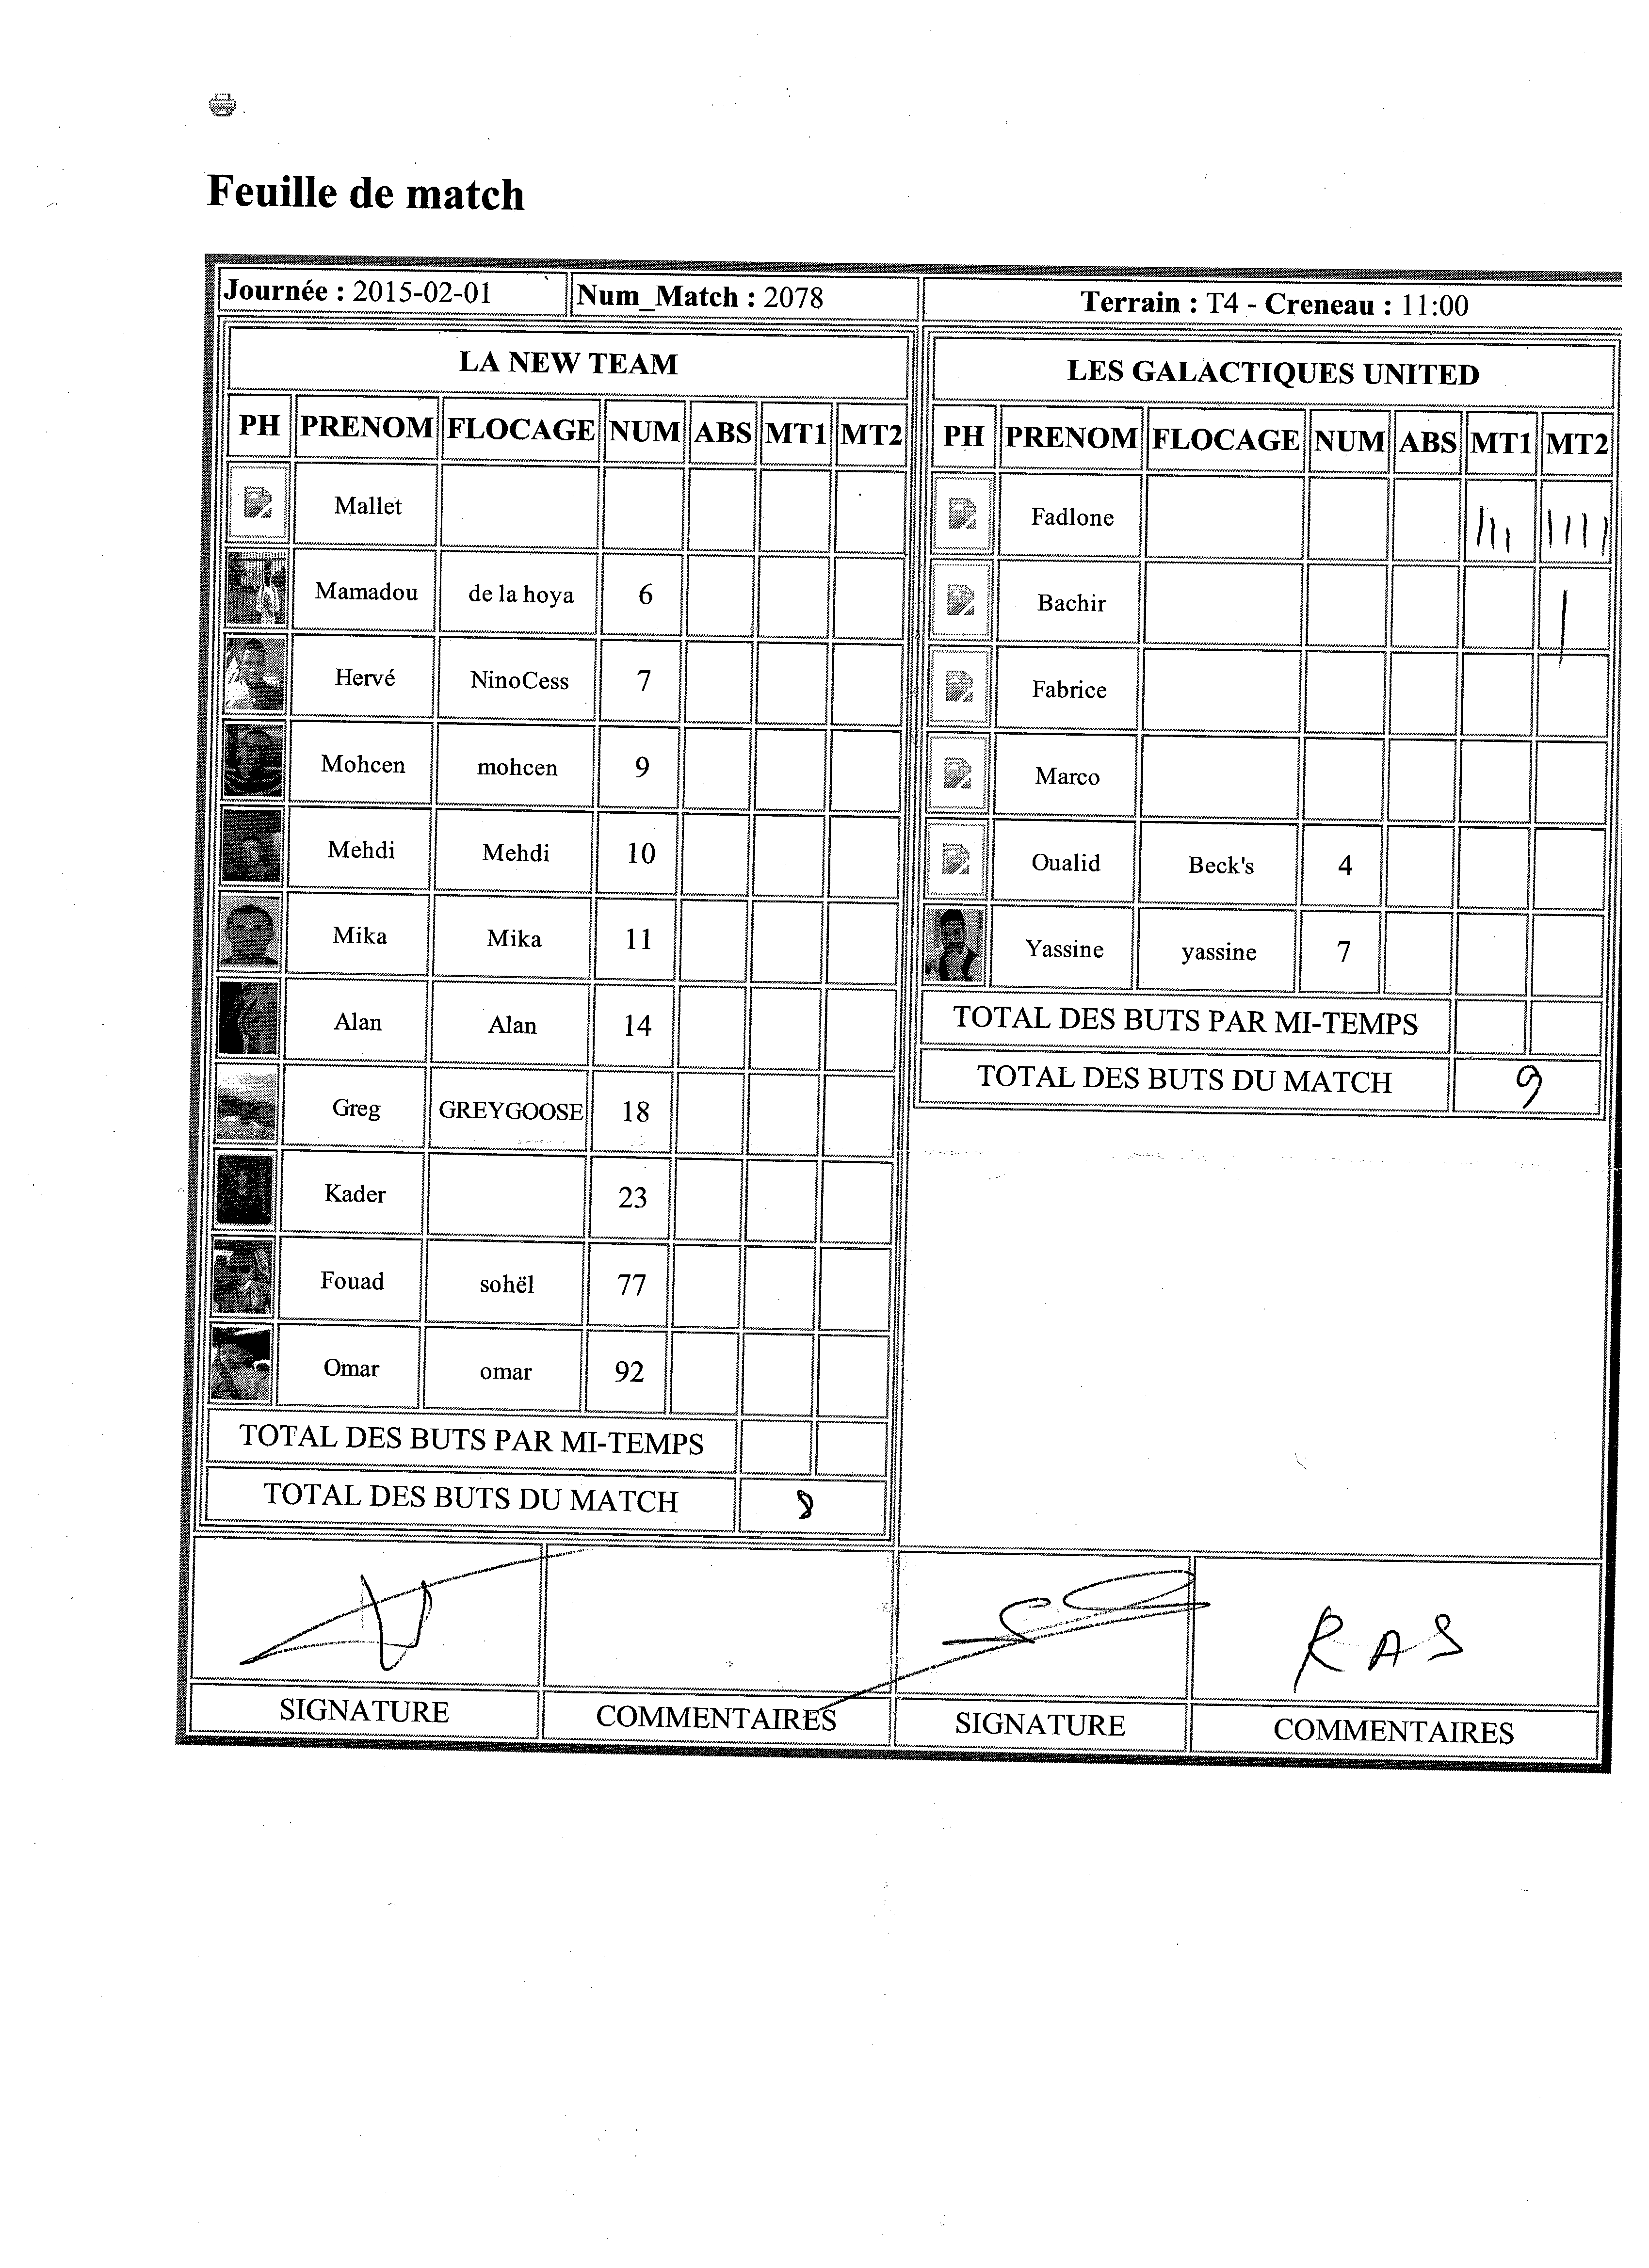 Feuille de match
Journée : 2015-02-01 Num_Match : 2078 Terrain : T4 - Creneau : 11:00
LA NEW TEAM
PH PRENOM FLOCAGE NUM ABS MT1 MT2
Mallet
Mamadou de la hoya 6
Hervé NinoCess 7
Mohcen mohcen 9
Mehdi Mehdi 10
Mika Mika 11
Alan Alan 14
Greg GREYGOOSE 18
Kader 23
Fouad sohël 77
Omar omar 92
TOTAL DES BUTS PAR MI-TEMPS
TOTAL DES BUTS DU MATCH 8
LES GALACTIQUES UNITED
PH PRENOM FLOCAGE NUM ABS MT1 MT2
Fadlone III IIII
Bachir I
Fabrice
Marco
Oualid Beck's 4
Yassine yassine 7
TOTAL DES BUTS PAR MI-TEMPS
TOTAL DES BUTS DU MATCH 9
RAS
SIGNATURE COMMENTAIRES SIGNATURE COMMENTAIRES